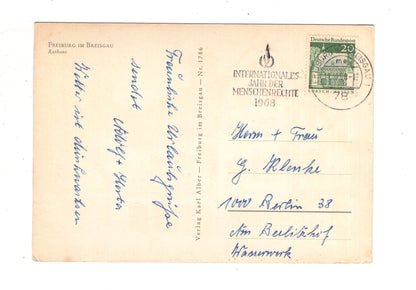 FREIBURG IM BREISGAU
Rathaus
Freundliche Urlaubsgrüße
sendet
Adolf + Herta
Wetter ist dunkwarsen
Verlag Karl Alber — Freiburg im Breisgau — Nr. 1786
INTERNATIONALES
JAHR DER
MENSCHENRECHTE
1968
Deutsche Bundespost
20
BREISGAU 1
78
Herrn + Frau
G. Klenke
1000 Berlin 38
Am Beelitzhof
Wasserwerk